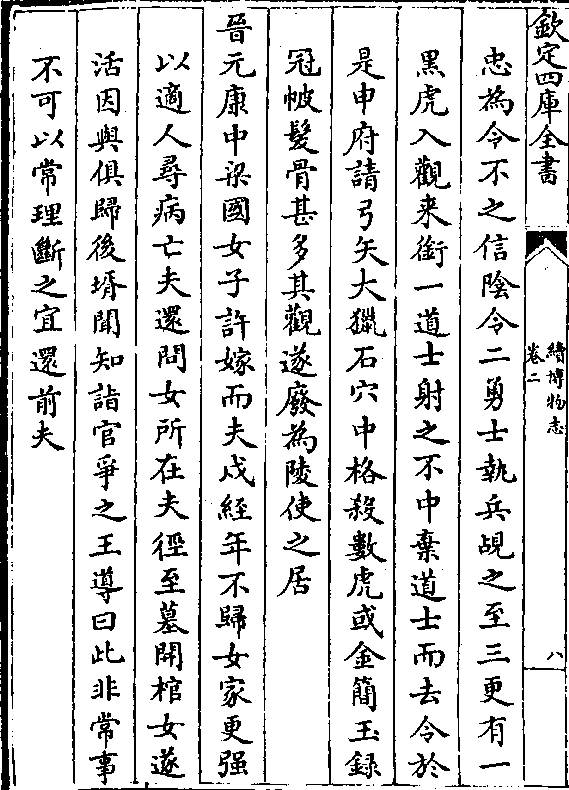 欽定四庫全書
續博物志
卷二
八
忠為令不之信陰令二勇士執兵覘之至三更有一
黑虎入觀来銜一道士射之不中棄道士而去令於
是申府請弓矢大獵石穴中格殺數虎或金簡玉録
冠帔髮骨甚多其觀遂廢為陵使之居
晉元康中梁國女子許嫁而夫戍經年不歸女家更强
以適人尋病亡夫還問女所在夫徑至墓開棺女遂
活因與俱歸後壻聞知詣官爭之王導曰此非常事
不可以常理斷之宜還前夫